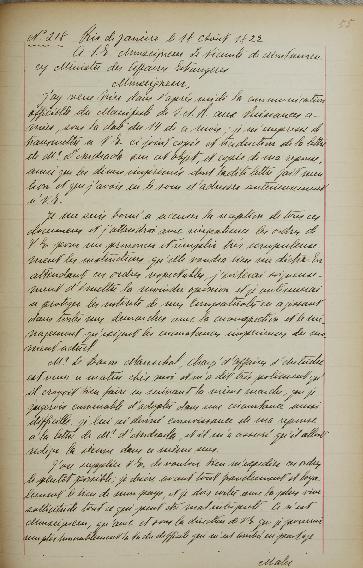 55
Nº 218 Rio de Janeiro le 17 Août 1822
A S. E. Monseigneur Le Vicomte de Montmorency
cy Ministre des Affaires Etrangères
Monseigneur,
J'ai reçu hier dans l'après midi la communication
officielle du Manifeste de S. A. R. aux Puissances a-
mies, sous la date du 14 de ce mois; je m'empresse de
transmettre à V. E. ci joint copie et traduction de la lettre
de Mr. d'Andrada sur cet objet, et copie de ma réponse,
ainsi que les deux imprimés dont la dite lettre fait men-
tion et que j'avois eu le soin d'adresser antérieurement
à V. E.
Je me suis borné à accuser la réception de tous ces
documens et j'attendrai avec impatience les ordres de
V. E. pour me prononcer et remplir très scrupuleuse-
ment les instructions qu'elle voudra bien me dicter. En
attendant ces ordres respectables, j'éviterai soigneuse-
ment d'émettre la moindre opinion et je continuerai
à protéger les intérêts de mes compatriotes en agissant
dans toutes mes démarches avec la circonspection et le mé-
nagement qu'exigent les circonstances impérieuses du mo-
ment actuel.
Mr. le Baron Mareschal, chargé d'affaires d'Autriche
est venu ce matin chez moi et m'a dit très poliment qu'
il croyoit bien faire en suivant la même marche, que je
jugerois convenable d'adopter dans une circonstance aussi
difficile, je lui ai donné connoissance de ma réponse
à la lettre de Mr. d'Andrada, et il m'a assuré qu'il alloit
rédiger la sienne dans le même sens.
J'ose supplier V. E. de vouloir bien m'expédier ces ordres
le plutôt possible, je désire avant tout
le bien de mon pays, et je dois éviter avec la plus vive
sollicitude tout ce qui peut être Ce n'est
Monseigneur, que sous la direction de V. E. que je pourrai
remplir honorablement la tâche difficile qui m'est tombée en partage
Maler